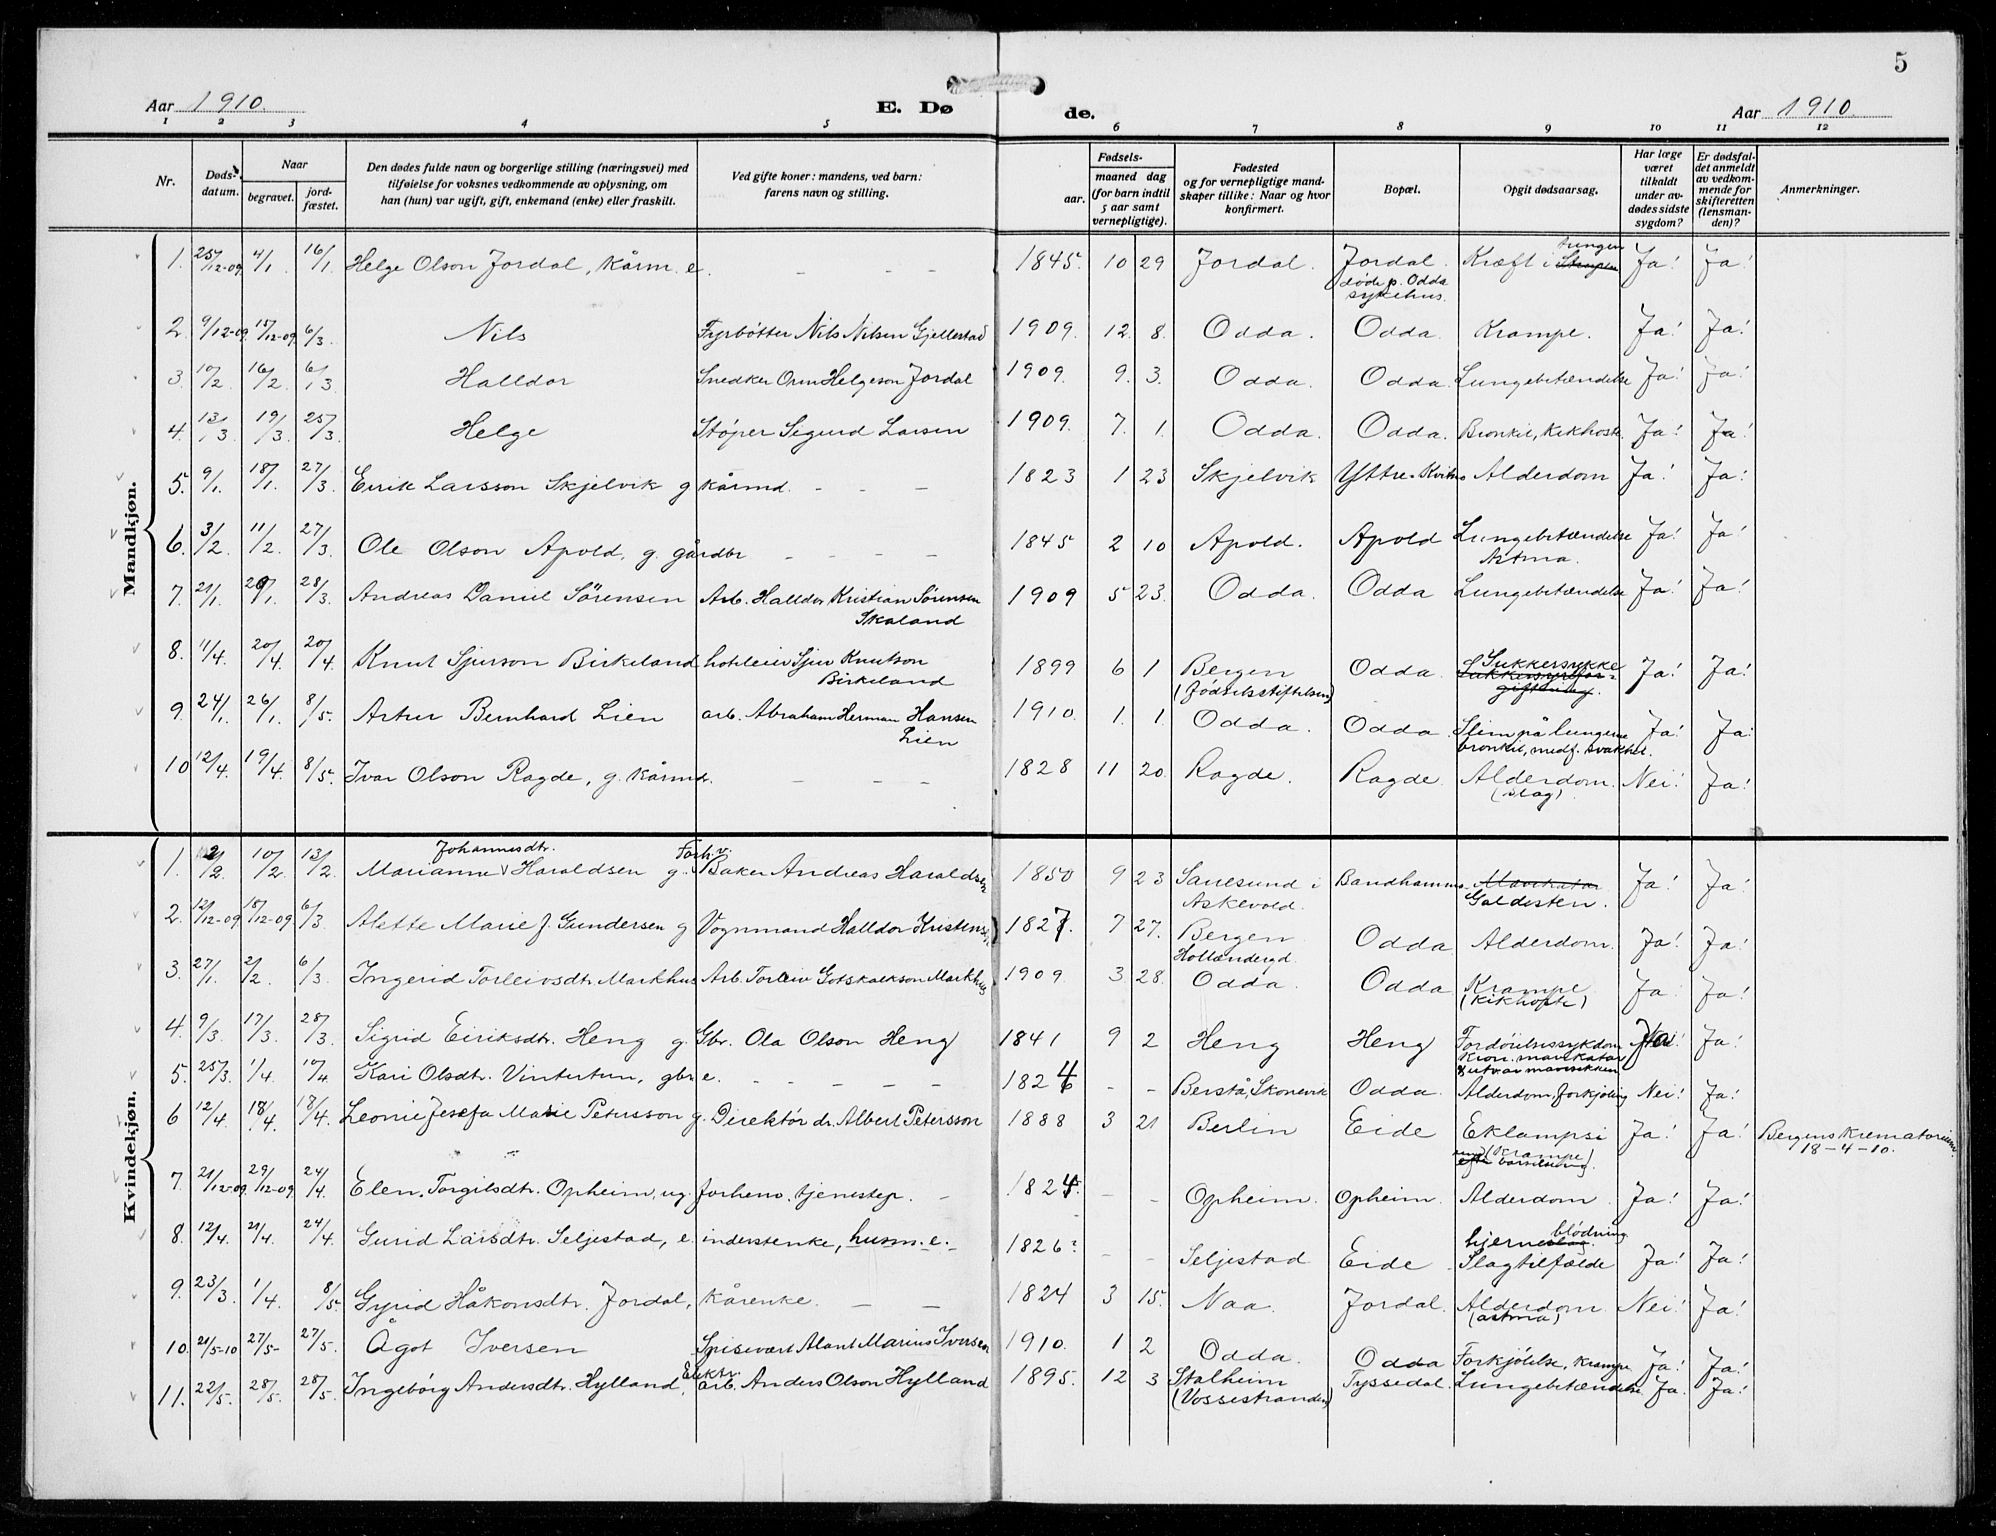 5
Aar 1910. E. Dø de. Aar 1910.
1 2 3 4 5 6 7 8 9 10 11 12
Nr. Døds-datum. Naar begravet. jord-fæstet. Den dødes fulde navn og borgerlige stilling (næringsvei) med tilføielse for voksnes vedkommende av oplysning, om han (hun) var ugift, gift, enkemand (enke) eller fraskilt. Ved gifte koner: mandens, ved barn: farens navn og stilling. Fødsels- aar. maaned dag (for barn indtil 5 aar samt vernepligtige). Fødested og for vernepligtige mand-skaper tillike: Naar og hvor konfirmert. Bopæl. Opgit dødsaarsag. Har læge været tilkaldt under av-dødes sidste sygdom? Er dødsfal-det anmeldt av vedkom-mende for skifteretten (lensman-den)? Anmerkninger.
Mandkjøn.
1. 25/12-09 4/1. 16/1. Helge Olson Jordal, kårm. e. – – – 1845. 10 29 Jordal. Jordal. døde p. Odda sykehus. Kræft i tungen Ja! Ja!
2. 9/12-09. 15/12-09 6/3. Nils Fyrbötter Nils Nilsen Gjellestad 1909. 12. 8. Odda. Odda. Krampe. Ja! Ja!
3. 10/2. 16/2. 6/3 Halldor Snedker Orm Helgeson Jordal 1909. 9. 3. Odda. Odda. Lungebetændelse Ja! Ja!
4. 13/3. 19/3. 25/3. Helge Støper Sigurd Larsen 1909. 7. 1. Odda. Odda. Bronkit, kikhoste Ja! Ja!
5. 9/1. 18/1. 27/3. Eirik Larsson Skjelvik g kårmd. – – – 1823 1 23 Skjelvik Yttre-Kvitno Alderdom Ja! Ja!
6. 3/2. 11/2. 27/3. Ole Olson Apold, g. gårdbr – – – – 1845 2 10 Apold. Apold Lungebetændelse Astma. Ja! Ja!
7. 21/1. 29/1. 28/3. Andreas Daniel Sörensen Arb. Halldor Kristian Sørensen Skaland 1909 5 23. Odda. Odda Lungebetændelse Ja! Ja!
8. 11/4. 20/4. 20/4. Knut Sjurson Birkeland Sjur Knutson Birkeland 1899 6 1 Bergen (Fødselsstiftelsen) Odda. Sukkersykke Ja! Ja!
9. 24/1. 26/1. 8/5. Artur Bernhard Lien arb. Abraham Herman Hansen Lien 1910. 1. 1. Odda. Odda. Slim på lungerne bronkit, medf. svakhet. Ja! Ja!
10 12/4. 19/4. 8/5. Ivar Olson Ragde, g. kårmd. – – – 1828 11 20. Ragde. Ragde. Alderdom. (slag). Nei! Ja!
Kvindekjøn.
1. 2/2 10/2. 13/2. Marianne Johannesdtr. Haraldsen g. Forhv. Baker Andreas Haraldsen 1850 9 23 Sauesund i Askevold. Bandhammo. Mavekatar Galdesten. Ja! Ja!
2. 12/12-09 18/12-09 6/3. Alette Marie J. Gundersen g Vognmand Halldor Kristensen 1827. 7 27. Bergen Hollændergd. Odda Alderdom. Ja! Ja!
3. 27/1. 2/2. 6/3. Ingerid Torleivsdtr. Markhus Arb. Torleiv Gotskalkson Markhus 1909. 3. 28. Odda. Odda Krampe (kikhoste) Ja Ja!
4. 9/3. 17/3. 28/3. Sigrid Eiriksdtr. Heng g. Gbr. Ola Olson Heng 1841 9 2 Heng Heng Fordöielsessykdom kron. mavekatar Ja!
5. 25/3. 1/4. 10/4 Kari Olsdtr. Vintertun, gbr e. – – – – – 1824 – – Berstå, Skonevik Odda. Alderdom, forkjöling Nei! Ja!
6 12/4. 18/4. 18/4. Leonie Josefa Marie Petersson g. Direktör dr. Albert Petersson 1888 3 21 Berlin Eide Eklampsi (Krampe) barselseng. Ja! Ja! Bergens Krematorium 18-4-10.
7. 21/12-09. 29/12-09. 24/4. Elen Torgilsdtr. Opheim, ug. forhenv. tjenestep. – 1824. – – Opheim. Opheim. Alderdom. Ja! Ja!
8. 12/4. 21/4. 24/4. Gurid Larsdtr. Seljestad, e. inderstenke, husm. e. 1826? – – Seljestad Eide hjerneblödning Slagtilfælde Ja! Ja!
9. 23/3. 1/4. 8/5. Gyrid Håkonsdtr. Jordal, kårenke. – – 1824 3 15. Naa. Jordal. Alderdom (astma) Nei! Ja!
10. 21/5-10 27/5- 27/5. Ågot Iversen Spisevært Alant Marius Iversen 1910. 1 2 Odda. Odda Forkjölelse, krampe Ja! Ja!
11. 22/5. 28/5. 28/5. Ingebörg Andersdtr. Hylland, Elektr. arb. Anders Olson Hylland 1895. 12 3 Stalheim (Vossestranden) Tyssedal. Lungebetændelse Ja. Ja!